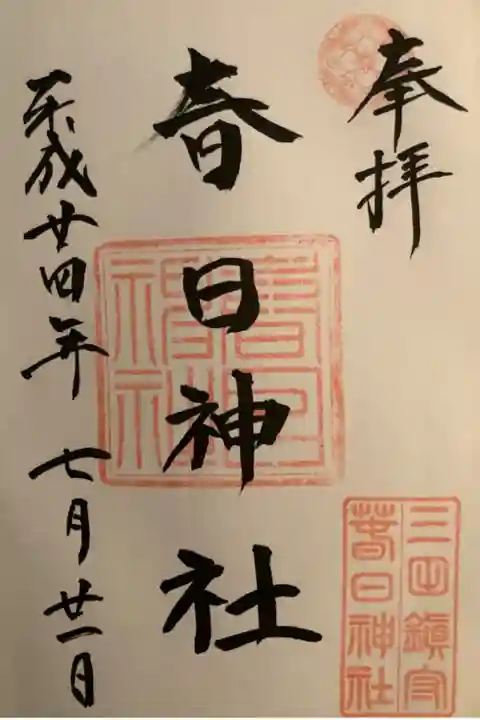 奉拝
春日神社
平成廿四年 七月廿一日
春日神社
三田鎮守
春日神社